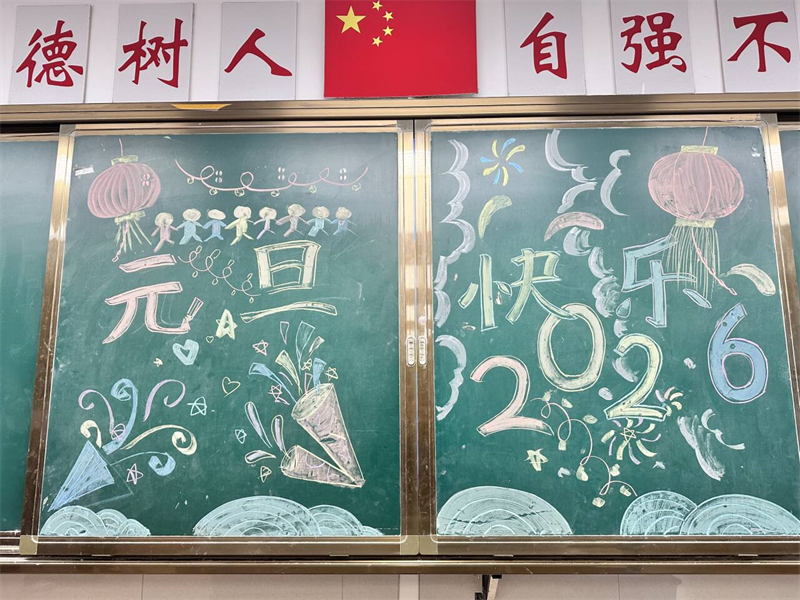 德树人 自强不
元旦 快乐
2026